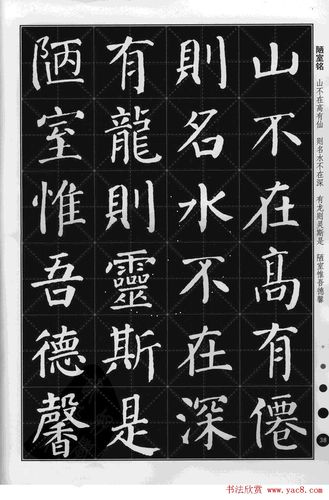 山不在髙有僊
則名水不在深
有龍則靈斯是
陋室惟吾德馨
陋室铭
山不在高有仙 则名水不在深 有龙则灵斯是 陋室惟吾德馨
38
书法欣赏
www.yac8.com